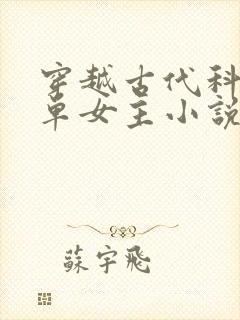 穿越古代科
單女主小說
蘇宇飛